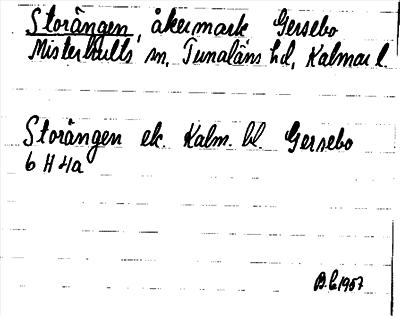 Storängen, åkermark Gersebo
Misterhults sn, Tunaläns hd, Kalmar l.
Storängen ek. Kalm. bl. Gersebo
6 H 4a
1957